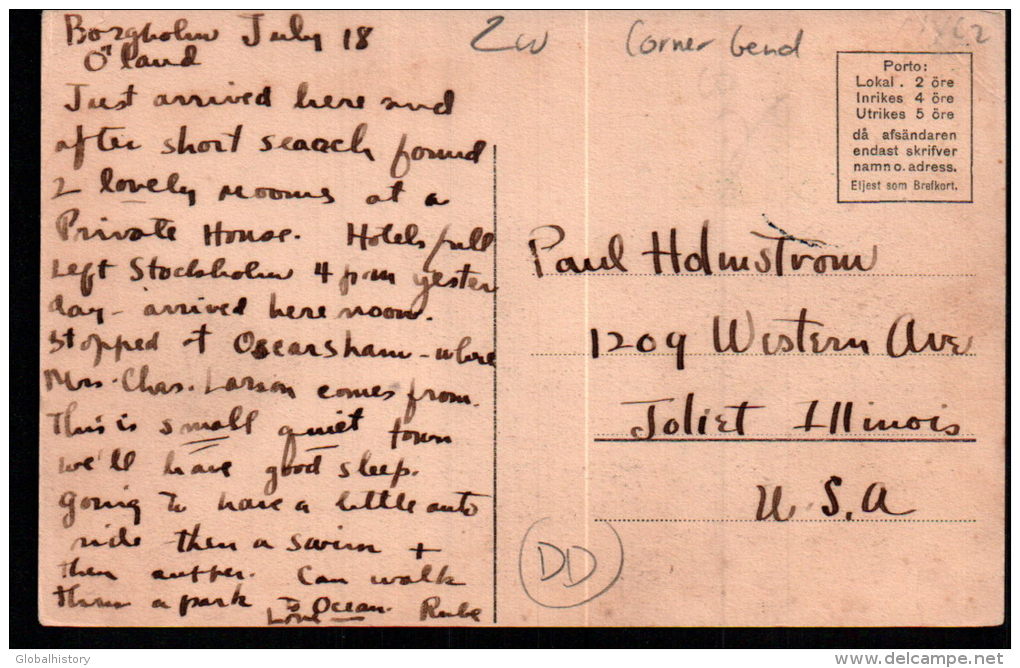 Borgholm July 18
Öland
Just arrived here and
after short search found
2 lovely rooms at a
Private House. Hotels full
Left Stockholm 4 p.m yester
day - arrived here noon.
Stopped at Oscarsham - where
Mrs. Chas. Larson comes from.
This is small quiet town
we'll have good sleep.
Going to have a little auto
ride then a swim +
then supper. Can walk
thru a park to Ocean.
Love Rube
Zw
Corner bend
Porto:
Lokal . 2 öre
Inrikes 4 öre
Utrikes 5 öre
då afsändaren
endast skrifver
namn o. adress.
Eljest som Brefkort.
Paul Holmstrom
1209 Western Ave
Joliet Illinois
U.S.A
DD
Globalhistory
delcampe.net